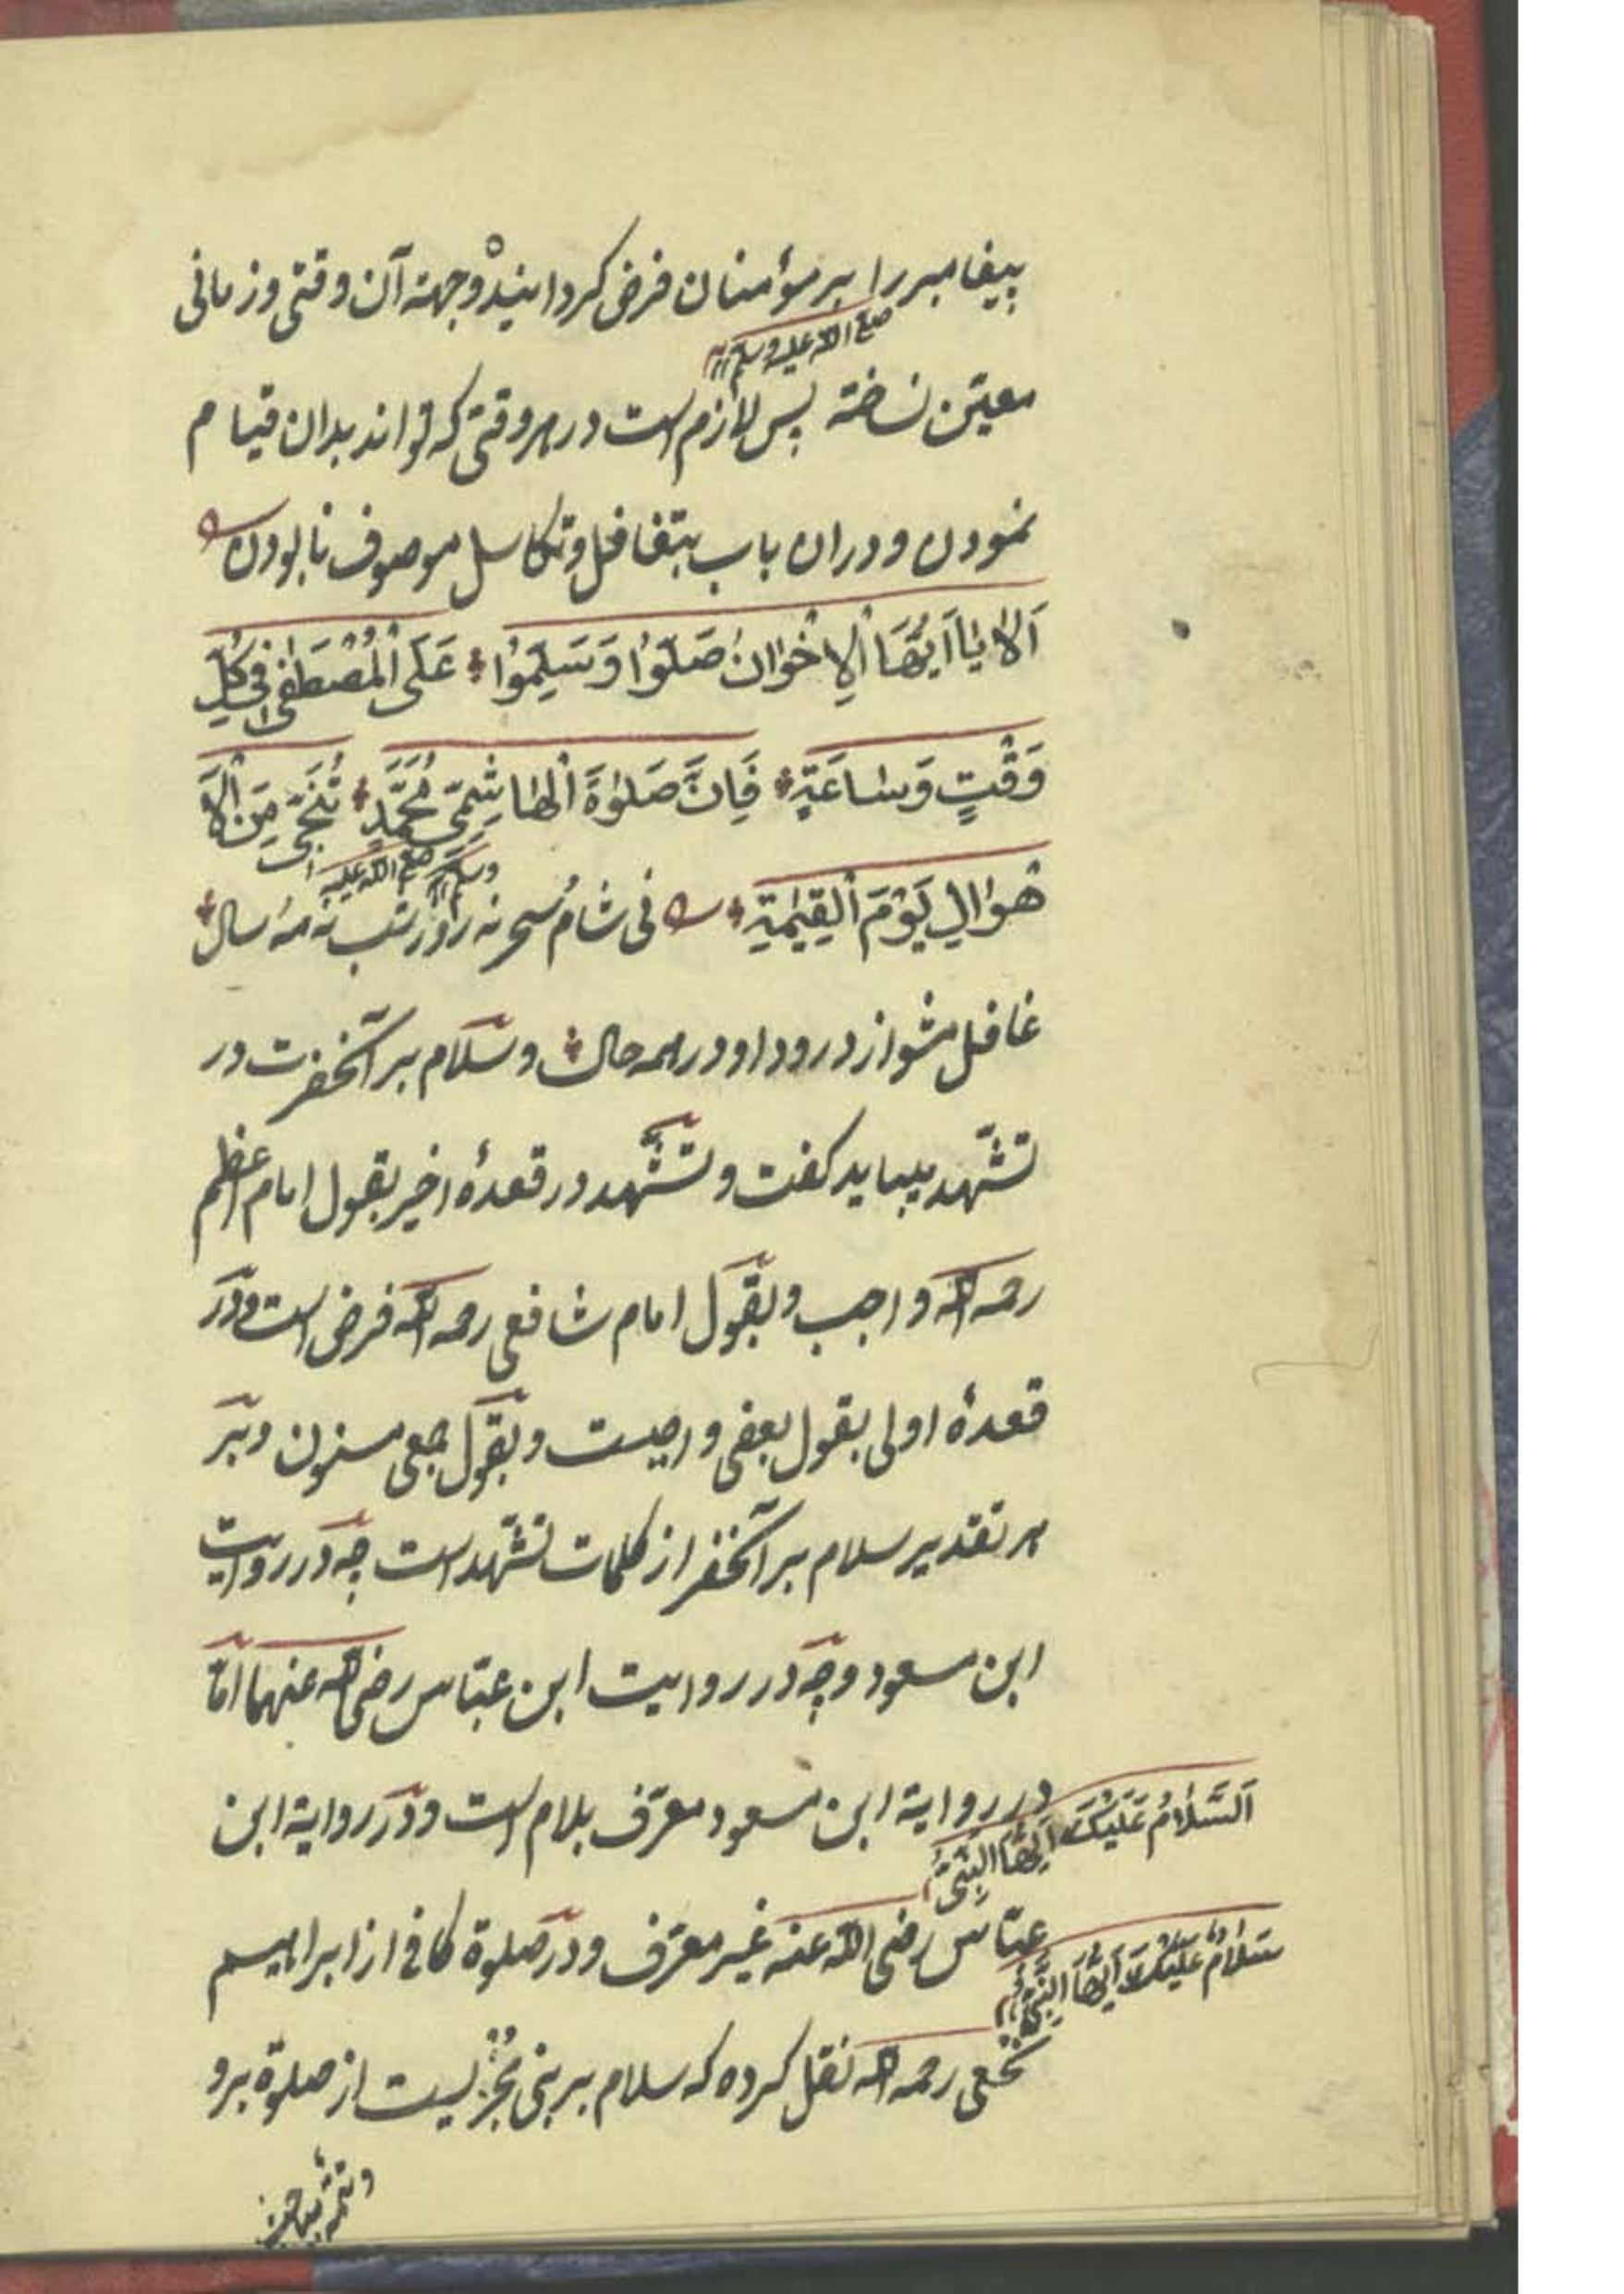 پیغامبر را بر مؤمنان فرض کردانیده و جهة آن وقتی و زمانی
صلی الله علیه وسلم
معیّن نساخته پس لازم است در هر وقتی که تواند بدان قیام
نمودن و دران باب بتغافل و تکاسل موصوف نابودن
اَلا یٰا اَیُّهَا الْاِخْوٰانُ صَلُّوْا وَسَلِّمُوْا عَلَی الْمُصْطَفٰی فِی کُلِّ
وَقْتٍ وَسٰاعَةٍ فَاِنَّ صَلٰوةَ الْهٰاشِمِیِّ مُحَمَّدٍ تُنَجِّی مِنَ الْاَ
صلی الله علیه وسلم
هْوٰالِ یَوْمَ الْقِیٰمَةِ فی شام و سحر نه روز و شب نه مه و سال
غافل مشو از درود او در همه حال و سلام بر آنحضرت در
تشّهد ببباید کفت و تشّهد در قعدهٔ اخیر بقول امام اعظم
رحمه الله واجب و بقول امام شافعی رحمه الله فرض است و در
قعدهٔ اولی بقول بعضی واجبست و بقول جمعی مسنون و بر
هر تقدیر سلام بر آنحضر از کلمات تشّهد است چه در روایت
ابن مسعود و چه در روایت ابن عبّاس رضی الله عنهما امّا
در روایة ابن مسعود معرّف بلام است و در روایة ابن
اَلسَّلٰامُ عَلَیْکَ اَیُّهَا النَّبِیُّ
عبّاس رضی الله عنه غیر معرّف و در صلوة کافی از ابراهیم
سَلٰامٌ عَلَیْکَ اَیُّهَا النَّبِیُّ
نخعی رحمه الله نقل کرده که سلام بر نبی مُجْزیست از صلوة برو